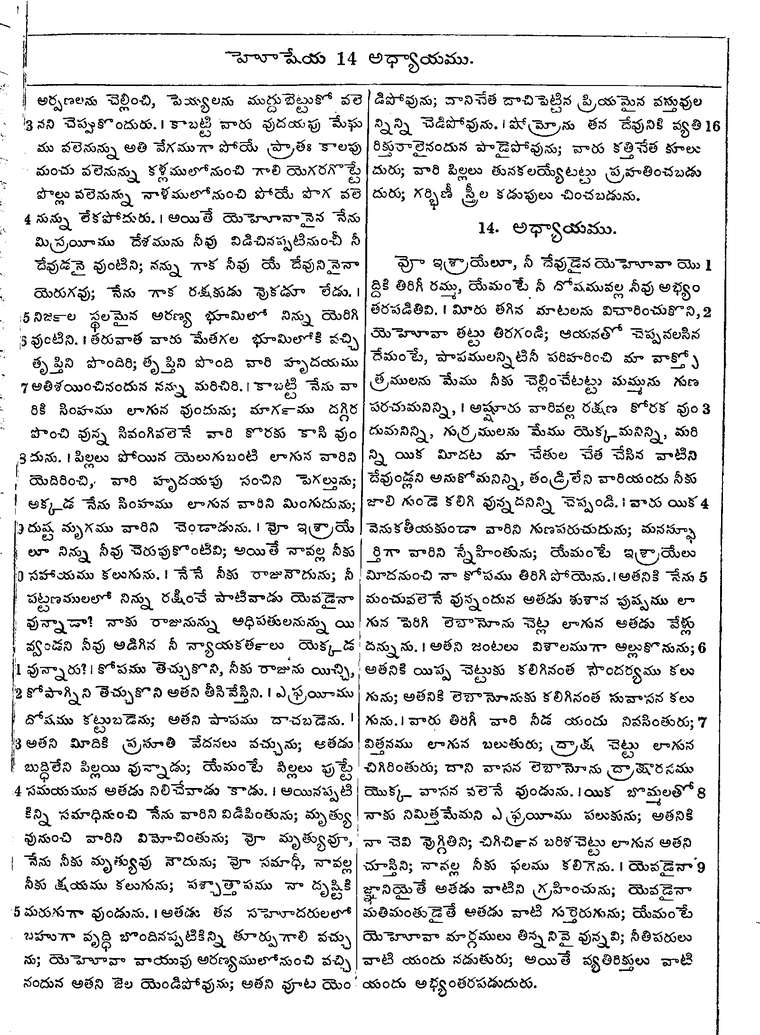 హెూషేయ 14 అధ్యాయము.
అర్పణలను చెల్లించి, పెయ్యలను ముద్దుబెట్టుకో వలె
3 నని చెప్పుకొందురు. । కాబట్టి వారు వుదయపు మేఘ
ము వలెనున్ను అతి వేగముగా పోయే ప్రాతః కాలపు
మంచు వలెనున్ను కళ్లములోనుంచి గాలి యెగరగొట్టే
పొల్లు వలెనున్ను నాళములోనుంచి పోయే పొగ వలె
4 నున్ను లేకపోదురు. । అయితే యెహెూవానైన నేను
మిస్రయీము దేశమును నీవు విడిచినప్పటినుంచీ నీ
దేవుడనై వుంటిని; నన్ను గాక నీవు యే దేవునినైనా
యెరుగవు; నేను గాక రక్షకుడు వొకడూ లేడు. ।
5 నిజల౯ స్థలమైన అరణ్య భూమిలో నిన్ను యెరిగి
6 వుంటిని. । తరువాత వారు మేతగల భూమిలోకి వచ్చి
తృప్తిని పొందిరి; తృప్తిని పొంది వారి హృదయము
7 అతిశయించినందున నన్ను మరిచిరి. । కాబట్టి నేను వా
రికి సింహము లాగున వుందును; మాగ౯ము దగ్గిర
పొంచి వున్న సివంగివలెనే వారి కొరకు కాసి వుం
8 దును. । పిల్లలు పోయిన యెలుగుబంటి లాగున వారిని
యెదిరించి, వారి హృదయపు సంచిని పెగల్తును;
అక్కడ నేను సింహము లాగున వారిని మింగుదును;
9 దుష్ట మృగము వారిని చెండాడును. । వో ఇశ్రాయే
లూ నిన్ను నీవు చెరుపుకొంటివి; అయితే నావల్ల నీకు
0 సహాయము కలుగును. । నేనే నీకు రాజునౌదును; నీ
పట్టణములలో నిన్ను రక్షించే పాటివాడు యెవడైనా
వున్నాడా? నాకు రాజునున్ను అధిపతులనున్ను యి
వ్వండని నీవు అడిగిన నీ న్యాయకత౯లు యెక్కడ
1 వున్నారు? । కోపము తెచ్చుకొని, నీకు రాజును యిచ్చి,
2 కోపాగ్నిని తెచ్చుకొని అతని తీసివేస్తిని. । ఎఫ్రయీము
దోషము కట్టుబడెను; అతని పాపము దాచబడెను. ।
3 అతని మీదికి ప్రసూతి వేదనలు వచ్చును; అతడు
బుద్ధిలేని పిల్లయి వున్నాడు; యేమంటే పిల్లలు పుట్టే
4 సమయమున అతడు నిలిచేవాడు కాడు. । అయినప్పటి
కిన్ని సమాధినుంచి నేను వారిని విడిపింతును; మృత్యు
వునుంచి వారిని విమోచింతును; వో మృత్యువూ,
నేను నీకు మృత్యువు నౌదును; వో సమాధీ, నావల్ల
నీకు క్షయము కలుగును; పశ్చాత్తాపము నా దృష్టికి
5 మరుగుగా వుండును. । అతడు తన సహెూదరులలో
బహుగా వృద్ధి బొందినప్పటికిన్ని తూర్పుగాలి వచ్చు
ను; యెహెూవా వాయువు అరణ్యములోనుంచి వచ్చి
నందున అతని జెల యెండిపోవును; అతని వూట యెం
డిపోవును; వానిచేత దాచిపెట్టిన ప్రియమైన వస్తువుల
న్నిన్ని చెడిపోవును. । షోమ్రోను తన దేవునికి వ్యతి 16
రిక్తురాలైనందున పాడైపోవును; వారు కత్తిచేత కూలు
దురు; వారి పిల్లలు తునకలయ్యేటట్టు ప్రహతించబడు
దురు; గర్భిణీ స్త్రీల కడుపులు చించబడును.
14. అధ్యాయము.
వో ఇశ్రాయేలూ, నీ దేవుడైన యెహెూవా యొ 1
ద్దికి తిరిగీ రమ్ము, యేమంటే నీ దోషమువల్ల నీవు అభ్యం
తరపడితివి. । మీరు తగిన మాటలను విచారించుకొని, 2
యెహెూవా తట్టు తిరగండి; ఆయనతో చెప్పవలసిన
దేమంటే, పాపములన్నిటినీ పరిహరించి మా వాక్స్తో
త్రములను మేము నీకు చెల్లించేటట్టు మమ్మును గుణ
పరచుమనిన్ని, । అష్షూరు వారివల్ల రక్షణ కోరక వుం 3
దుమనిన్ని, గుర్రములను మేము యెక్కమనిన్ని, మరి
న్ని యిక మీదట మా చేతుల చేత చేసిన వాటిని
దేవుండ్లని అనుకోమనిన్ని, తండ్రిలేని వారియందు నీకు
జాలి గుండె కలిగి వున్నదనిన్ని చెప్పండి. । వారు యిక 4
వెనుకతీయకుండా వారిని గుణపరుచుదును; మనస్ఫూ
ర్తిగా వారిని స్నేహింతును; యేమంటే ఇశ్రాయేలు
మీదనుంచి నా కోపము తిరిగి పోయెను. । అతనికి నేను 5
మంచువలెనే వున్నందున అతడు శుశాన పుష్పము లా
గున పెరిగి లెబానోను చెట్ల లాగున అతడు వేళ్లు
దన్నును. । అతని జంటలు విశాలముగా అల్లుకొనును; 6
అతనికి యిప్ప చెట్టుకు కలిగినంత సౌందర్యము కలు
గును; అతనికి లెబానోనుకు కలిగినంత సువాసన కలు
గును. । వారు తిరిగీ వారి నీడ యందు నివసింతురు; 7
విత్తనము లాగున బలుతురు; ద్రాక్ష చెట్టు లాగున
చిగిరింతురు; దాని వాసన లెబానోను ద్రాక్షారసము
యొక్క వాసన వలెనే వుండును. । యిక బొమ్మలతో 8
నాకు నిమిత్తమేమని ఎఫ్రయీము పలుకును; అతనికి
నా చెవి వొగ్గితిని; చిగిచి౯న బరిశచెట్టు లాగున అతని
చూస్తిని; నావల్ల నీకు ఫలము కలిగెను. । యెవడైనా 9
జ్ఞానియైతే అతడు వాటిని గ్రహించును; యెవడైనా
మతిమంతుడైతే అతడు వాటి గుర్తెరుగును; యేమంటే
యెహెూవా మార్గములు తిన్ననివై వున్నవి; నీతిపరులు
వాటి యందు నడుతురు; అయితే వ్యతిరిక్తులు వాటి
యందు అభ్యంతరపడుదురు.